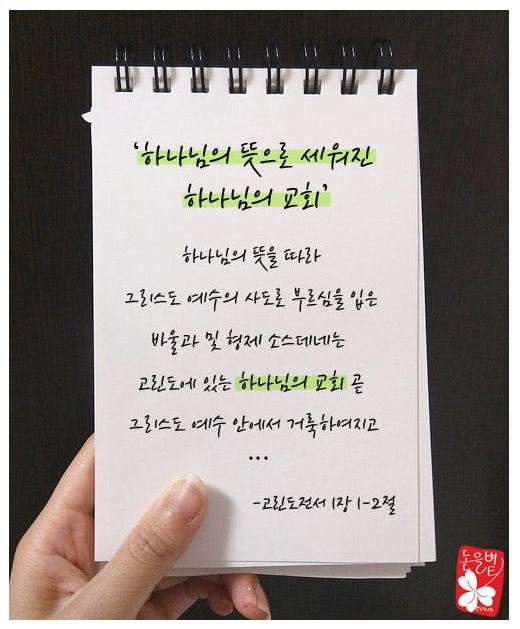 '하나님의 뜻으로 세워진
하나님의 교회'
하나님의 뜻을 따라
그리스도 예수의 사도로 부르심을 입은
바울과 및 형제 소스데네는
고린도에 있는 하나님의 교회 곧
그리스도 예수 안에서 거룩하여지고
...
-고린도전서 1장 1-2절